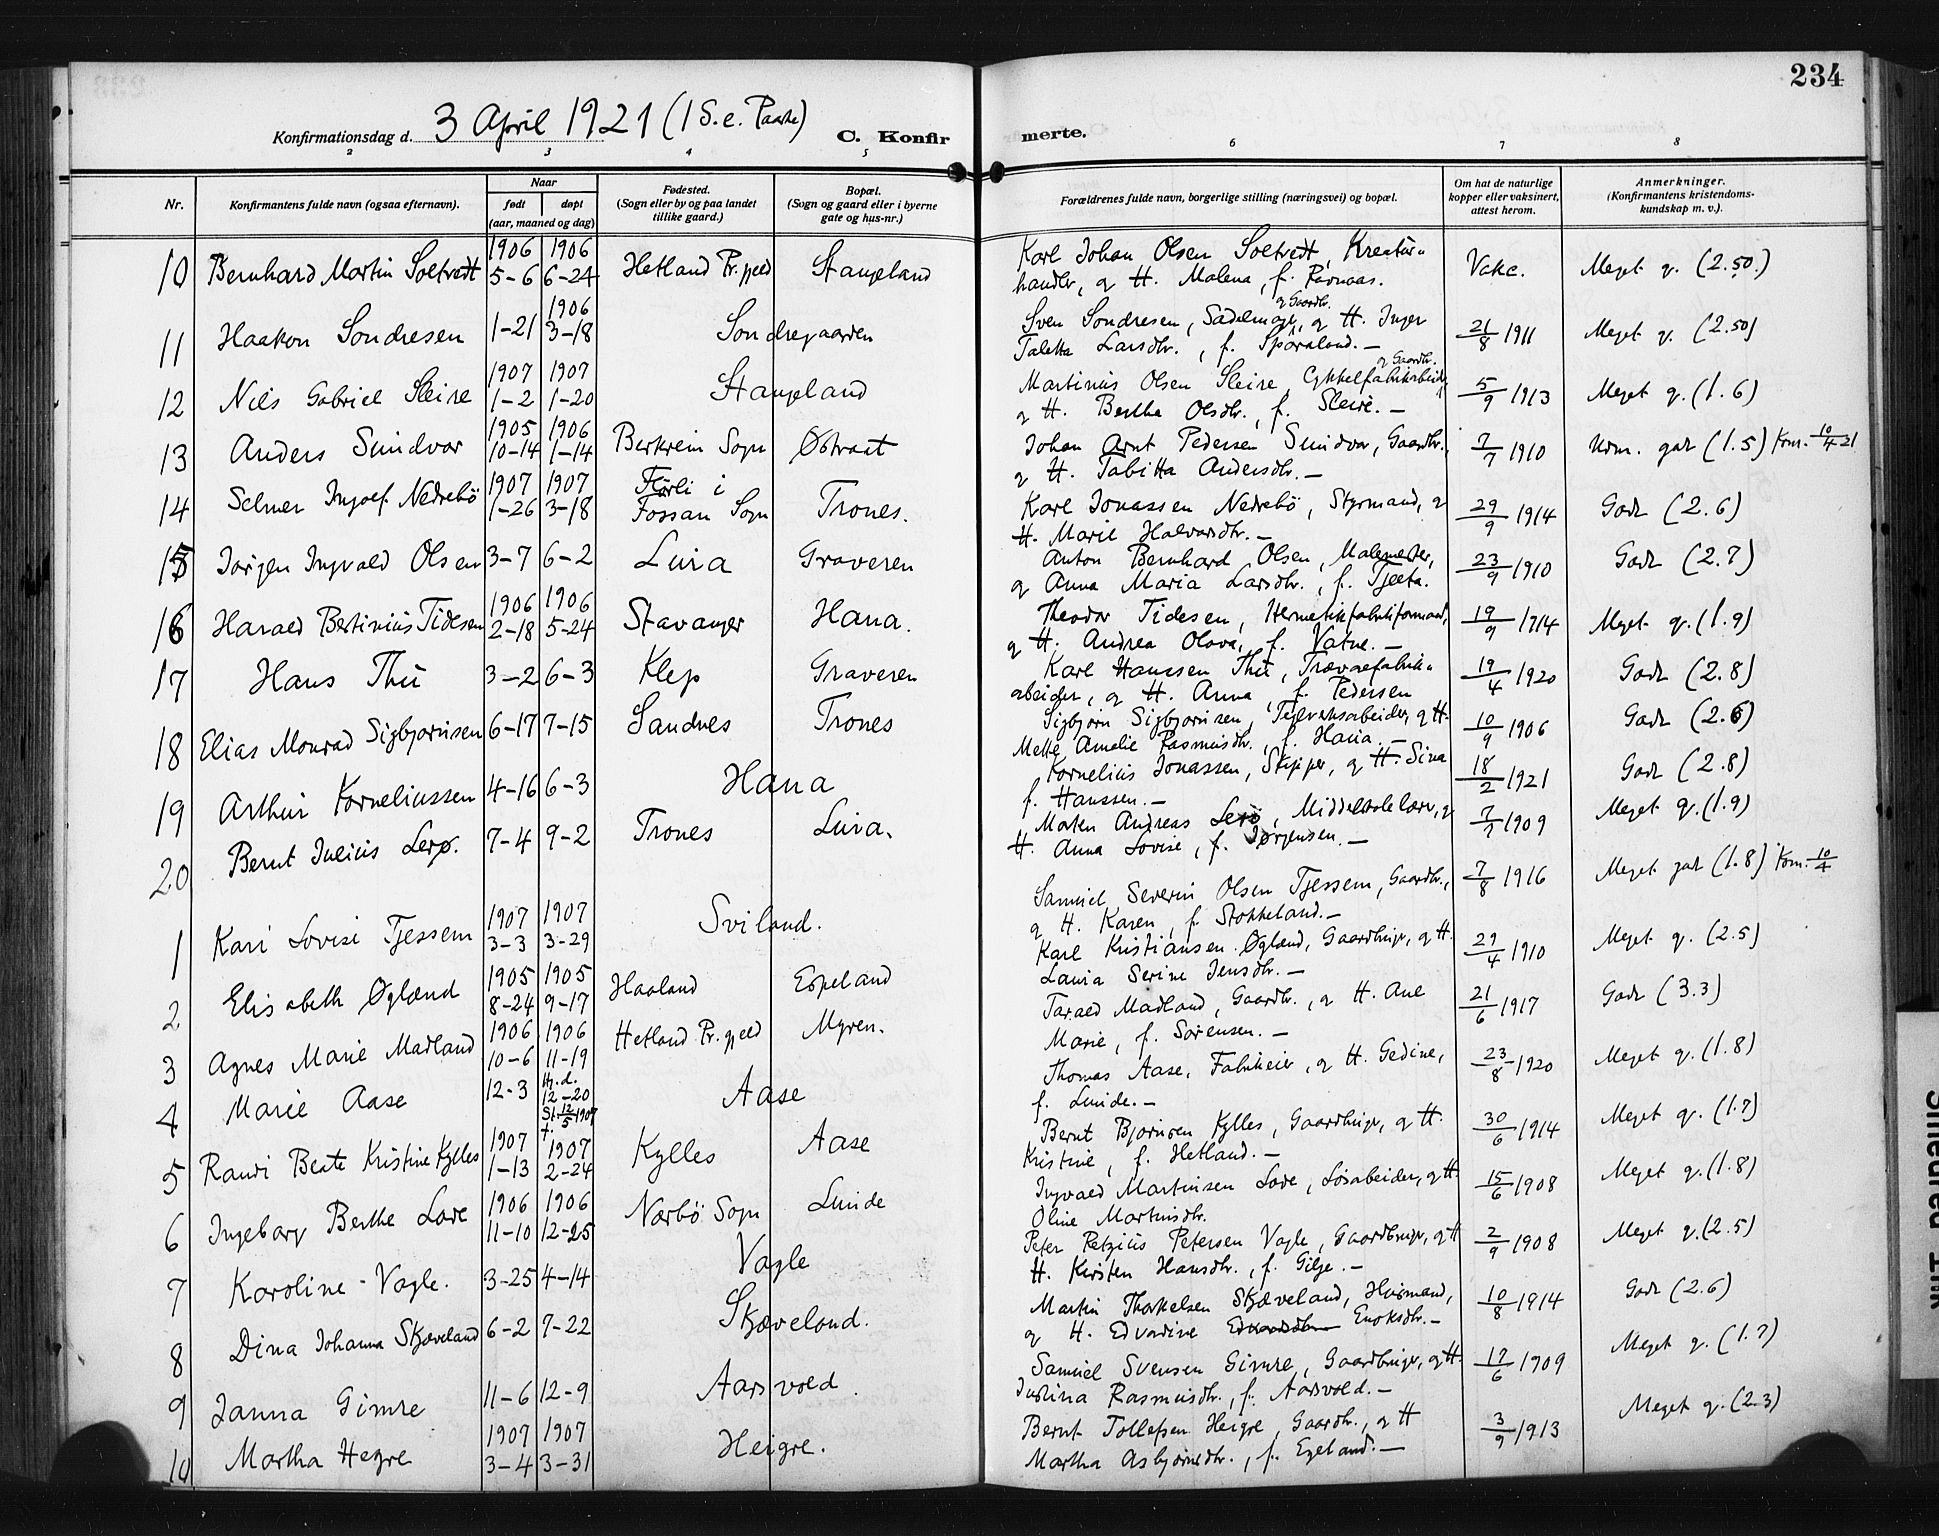 234
Konfirmationsdag d. 3 April 1921 (1 S. e. Paaske) C. Konfirmerte.
2 3 4 5 6 7 8
Nr. Konfirmantens fulde navn (ogsaa efternavn). Naar født døpt (aar, maaned og dag) Fødested. (Sogn eller by og paa landet tillike gaard.) Bopæl. (Sogn og gaard eller i byerne gate og hus-nr.) Forældrenes fulde navn, borgerlige stilling (næringsvei) og bopæl. Om hat de naturlige kopper eller vaksinert, attest herom. Anmerkninger. (Konfirmantens kristendoms-kundskap m. v.).
10 Bernhard Martin Soltvedt 1906 5-6 1906 6-24 Hetland Pr.gjeld Stangeland Karl Johan Olsen Soltvedt, Kreatur-
handler, og H. Malena, f. Ravnaas. Vakc. Meget g. (2.50.)
11 Haakon Sondresen 1-21 1906 3-18 Sondregaarden Sven Sondresen, Sadelmager, og Gaardbr. og H. Inger
Taletta Larsdtr., f. Sporaland. - 21/8 1911 Meget g. (2.50)
12 Nils Gabriel Sleire 1907 1-2 1907 1-20 Stangeland Martinius Olsen Sleire, Cykkelfabrikarbeider og Gaardbr.
og H. Berthe Olsdtr. f. Sleire. - 5/9 1913 Meget g. (1.6)
13 Anders Sundvor 1905 10-14 1906 1-14 Berkrein Sogn Østraat Johan Arnt Pedersen Sundvor, Gaardbr.,
og H. Tabitta Andersdtr. - 7/7 1910 Udm. godt (1.5) Kom. 10/4 21
14 Selmer Ingolf Nedrebö 1907 1-26 1907 3-18 Fossan Sogn Trones. Karl Jonassen Nedrebö, Styrmand, og
H. Marie Halvardtr. - 29/9 1914 Godt (2.6)
15 Jörgen Ingvald Olsen 3-7 6-2 Lura Graveren Anton Bernhard Olsen, Malemester,
og Anna Maria Larsdtr., f. Tjeeta. 23/9 1910 Godt (2.7)
16 Harald Bertinius Tidesen 1906 2-18 1906 5-24 Stavanger Hana. Theodor Tidesen, Hermetikfabrikformand,
og H. Andrea Olava, f. Vatne. - 19/9 1914 Meget g. (1.9)
17 Hans Thu 3-2 6-3 Klep Graveren Karl Hanssen Thu, Trævarefabrik-
arbeider, og H. Anna, f. Pedersen 19/4 1920 Godt (2.8)
18 Elias Monrad Sigbjørnsen 6-17 7-15 Sandnes Trones Sigbjørn Sigbjørnsen, Teglverksarbeider, og H.
Mette Amalie Rasmusdtr., f. Hana. - 10/9 1906 Godt (2.6)
19 Arthur Korneliussen 4-16 6-3 Hana Kornelius Jonassen, Skipper, og H. Sina
f. Hanssen. - 18/2 1921 Godt (2.8)
20 Bernt Julius Lerø. 7-4 9-2 Trones Lura. Morten Andreas Lerø, Middelskolelærer, og
H. Anna Lovise, f. Jørgensen. - 7/7 1909 Meget g. (1.9)
1 Kari Lovise Tjessem 1907 3-3 1907 3-29 Sviland. Samuel Severin Olsen Tjessem, Gaardbr.,
og H. Karen, f. Stokkeland. - 7/8 1916 Meget godt (1.8) Kom. 10/4
2 Elisabeth Øglænd 1905 8-24 1905 9-17 Haaland Espeland Karl Kristiansen Øglænd, Gaardbruger, og H.
Laura Serine Jensdtr. - 29/4 1910 Meget g. (2.5)
3 Agnes Marie Madland 1906 10-6 1906 11-19 Hetland Pr.gjeld Myren. Tarald Madland, Gaardbr., og H. Ane
Marie, f. Sørensen. - 21/6 1917 Godt (3.3)
4 Marie Aase 12-3 Hj.d. 12-20 St. 12/5 1907 Aase Thomas Aase, Fabrikeier, og H. Gedine,
f. Lunde. - 23/8 1920 Meget g. (1.8)
5 Randi Beate Kristine Kylles 1907 1-13 1907 2-24 Kylles Aase Bernt Bjørnsen Kylles, Gaardbruger, og H.
Kristine, f. Hetland. - 30/6 1914 Meget g. (1.7)
6 Ingeborg Berthe Lore 1906 11-10 1906 12-25 Nærbö Sogn Lunde Ingvald Martinsen Lode, Løsarbeider, og H.
Oline Martinsdtr. 15/6 1908 Meget g. (1.8)
7 Karoline Vagle. 3-25 4-14 Vagle Peter Retzius Petersen Vagle, Gaardbruger, og
H. Kirsten Hansdtr., f. Gilje. - 2/9 1908 Meget g. (2.5)
8 Dina Johanna Skjæveland 6-2 7-22 Skjæveland. Martin Thorkelsen Skjæveland, Husmand,
og H. Edvardine Enoksdtr. - 10/8 1914 Godt (2.6)
9 Janna Gimre 11-6 12-9 Aarsvold. Samuel Svensen Gimre, Gaardbruger, og H.
Justina Rasmusdtr., f. Aarsvold. - 17/6 1909 Meget g. (1.7)
10 Martha Hegre 1907 3-4 1907 3-31 Heigre. Bernt Tollefsen Heigre, Gaardbr., og H
Martha Asbjørnsdtr., f. Egeland. - 3/9 1913 Meget g. (2.3)